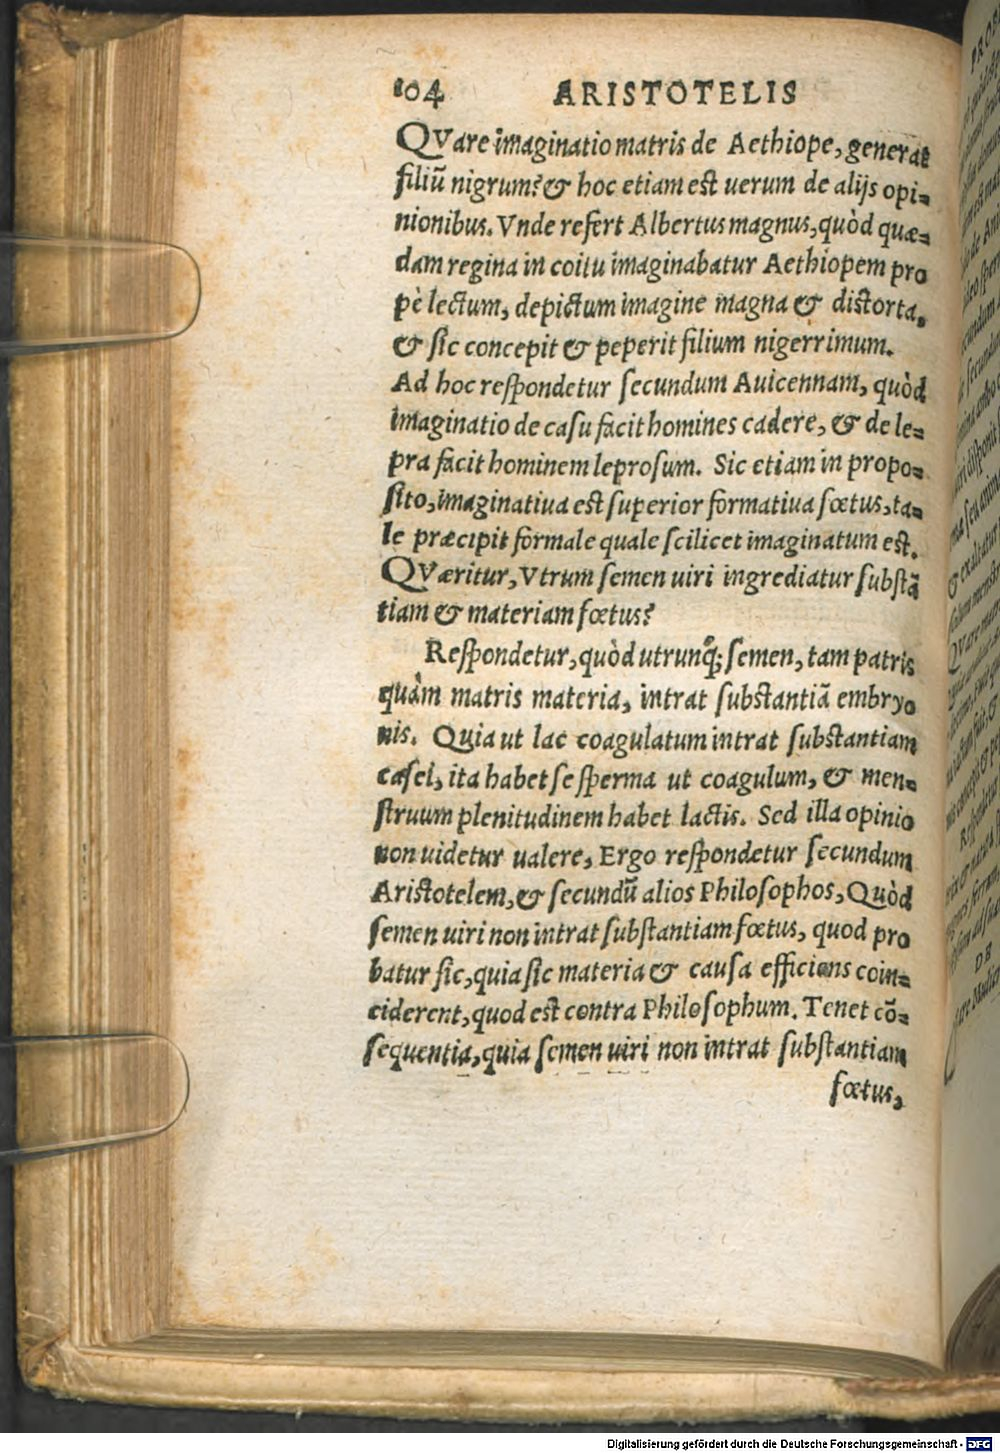 104 ARISTOTELIS
QVare imaginatio matris de Aethiope, generat
filiũ nigrum? & hoc etiam est uerum de alijs opi-
nionibus. Vnde refert Albertus magnus, quòd quæ-
dam regina in coitu imaginabatur Aethiopem pro
pè lectum, depictum imagine magna & distorta,
& sic concepit & peperit filium nigerrimum.
Ad hoc respondetur secundum Auicennam, quòd
imaginatio de casu facit homines cadere, & de le-
pra facit hominem leprosum. Sic etiam in propo-
sito, imaginatiua est superior formatiua fœtus, ta-
le præcipit formale quale scilicet imaginatum est.
QVæritur, Vtrum semen uiri ingrediatur substã
tiam & materiam fœtus?
Respondetur, quòd utrunq; semen, tam patris
quàm matris materia, intrat substantiã embryo
nis. Quia ut lac coagulatum intrat substantiam
casei, ita habet se sperma ut coagulum, & men-
struum plenitudinem habet lactis. Sed illa opinio
non uidetur ualere, Ergo respondetur secundum
Aristotelem, & secundũ alios Philosophos, Quòd
semen uiri non intrat substantiam fœtus, quod pro
batur sic, quia sic materia & causa efficiens coin-
ciderent, quod est contra Philosophum. Tenet cõ-
sequentia, quia semen uiri non intrat substantiam
fœtus,
Digitalisierung gefördert durch die Deutsche Forschungsgemeinschaft - DFG